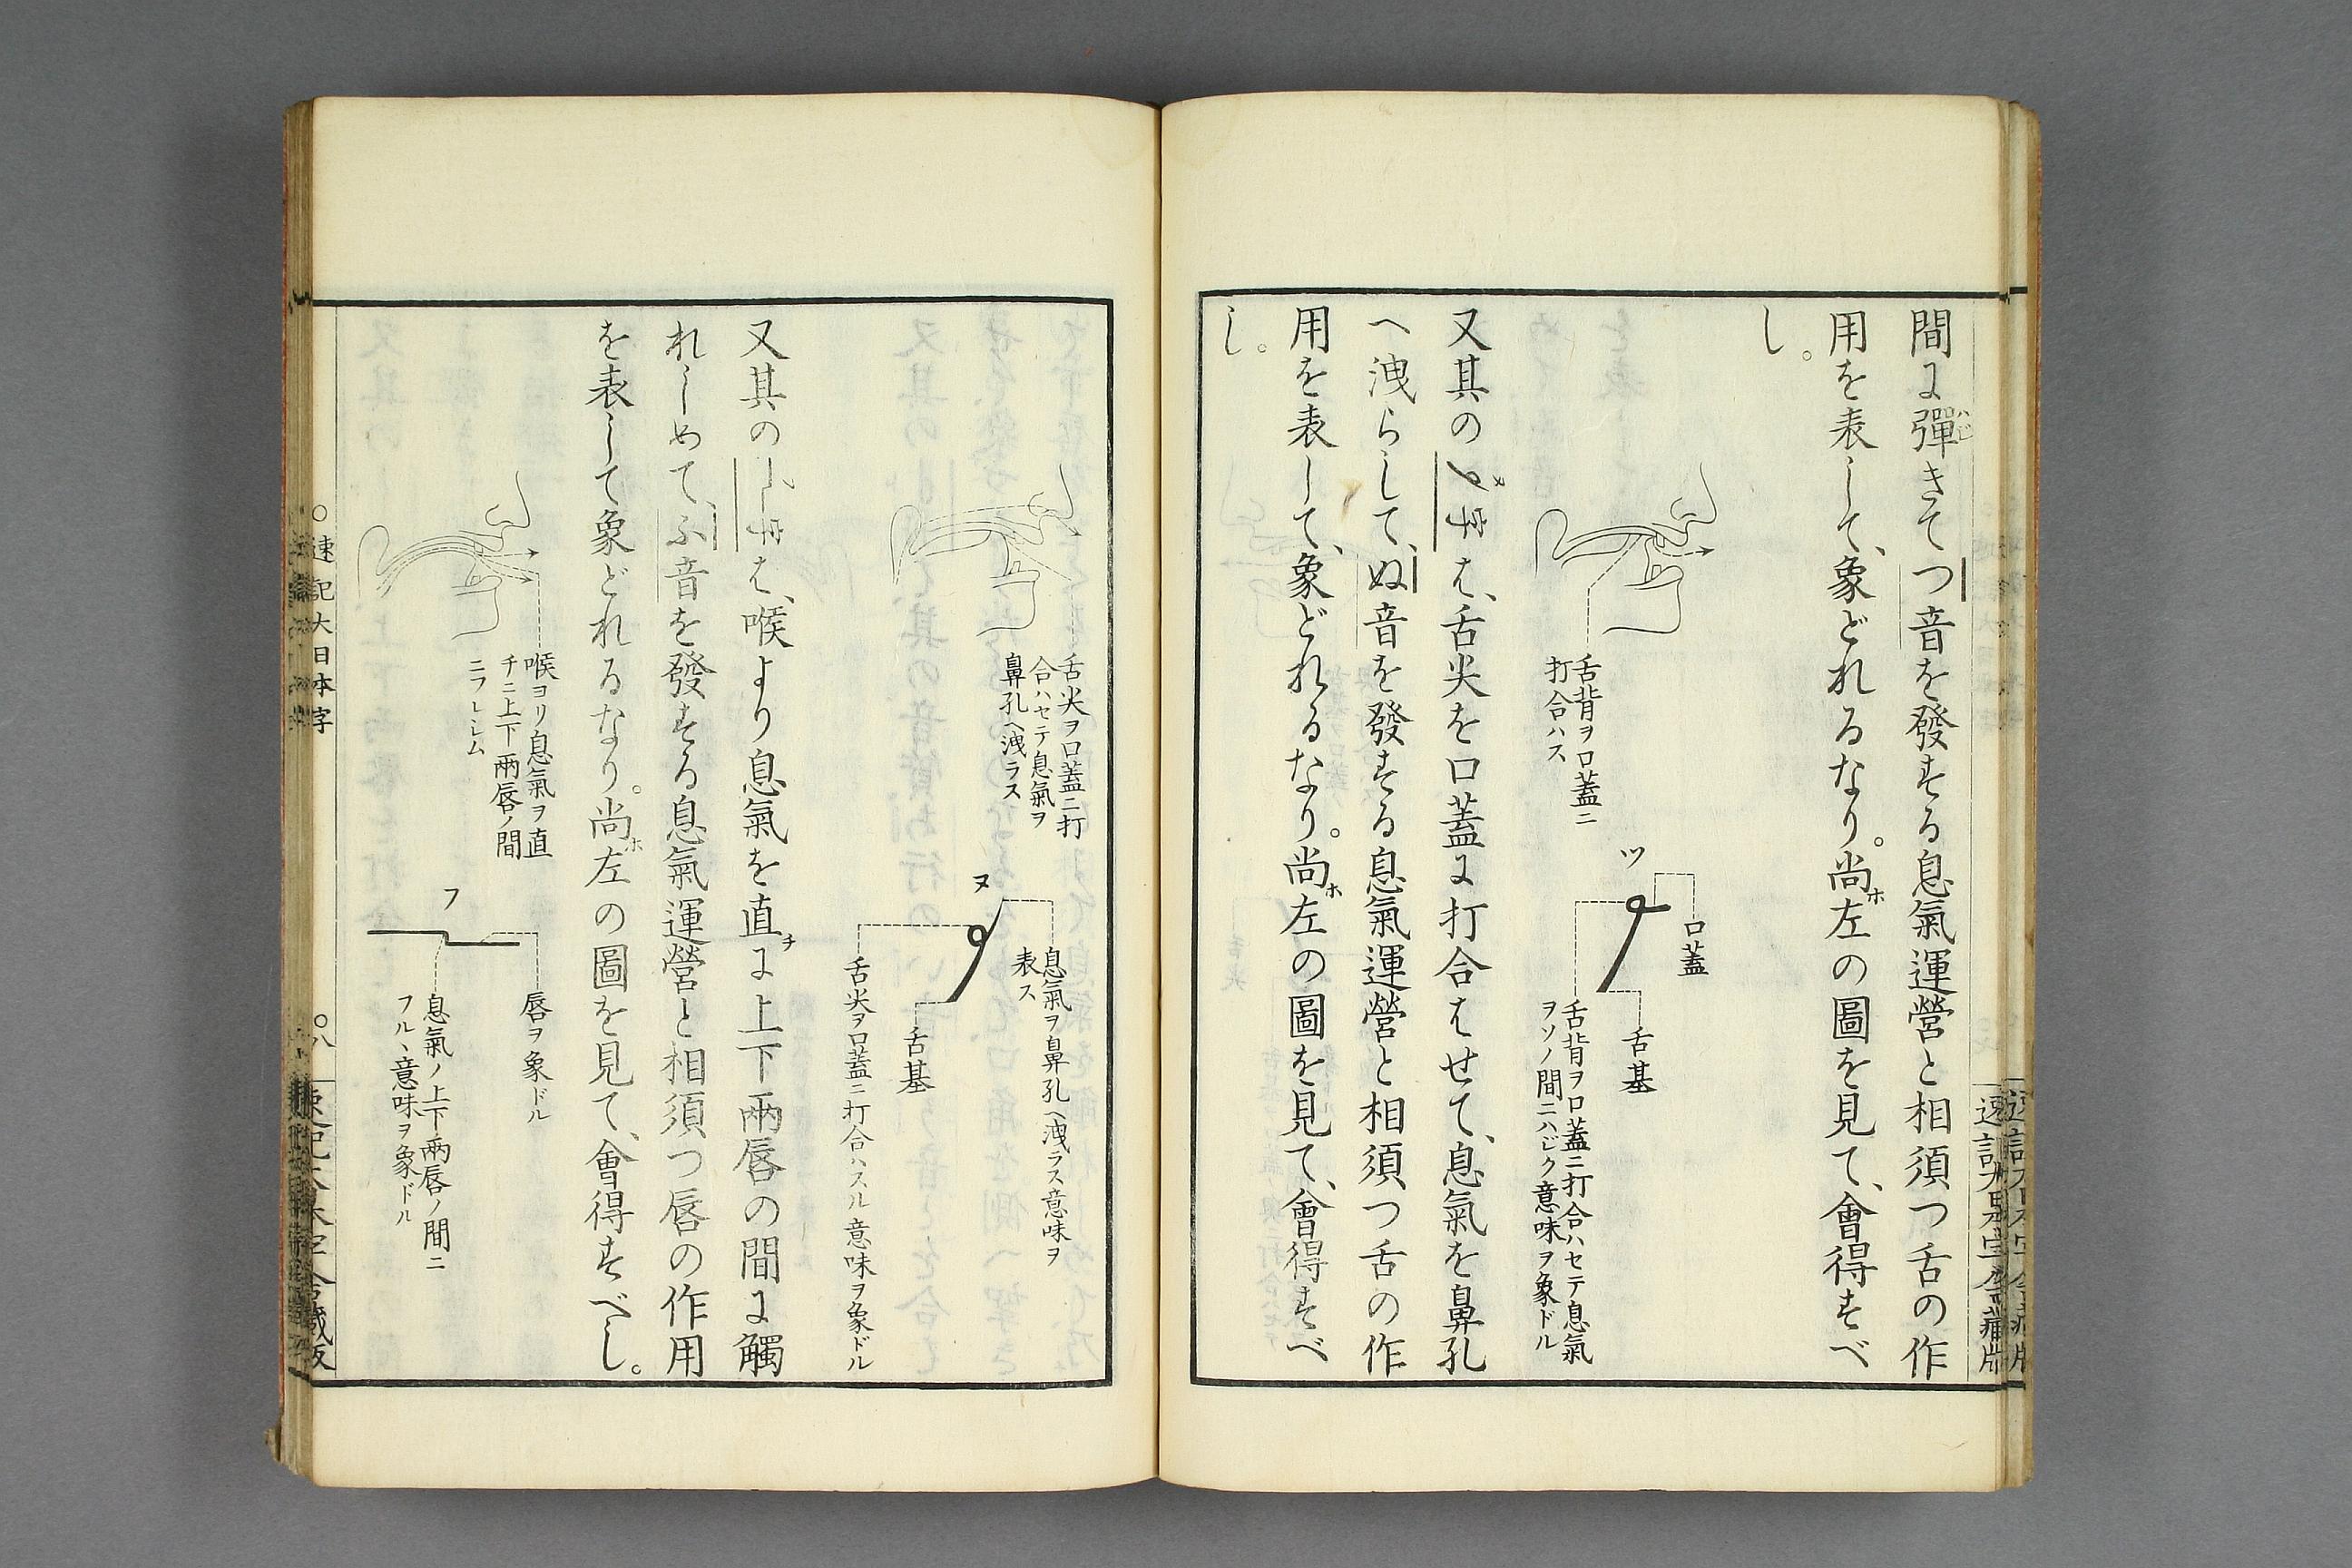 間に彈きてつ音を發する息氣運營と相須つ舌の作
ハじ
用を表して、象どれるなり。尚左の圖を見て、會得すべ
ホ
し。
舌背ヲ口蓋ニ
打合ハス
ツ
口蓋
舌基
舌背ヲ口蓋ニ打合ハセテ息氣
ヲソノ間ニハジク意味ヲ象ドル
又其の
ヌ
は、舌尖を口蓋に打合はせて、息氣を鼻孔
へ洩らして、ぬ音を發する息氣運營と相須つ舌の作
用を表して、象どれるなり。尚左の圖を見て、會得すべ
ホ
し。
舌尖ヲ口蓋ニ打
合ハセテ息氣ヲ
鼻孔ヘ洩ラス
ヌ
息氣ヲ鼻孔ヘ洩ラス意味ヲ
表ス
舌基
舌尖ヲ口蓋ニ打合ハスル意味ヲ象ドル
又其の
は、喉より息氣を直に上下兩唇の間に觸
チ
れしめて、ふ音を發する息氣運營と相須つ唇の作用
を表して象どれるなり。尚左の圖を見て、會得すべし。
ホ
喉ヨリ息氣ヲ直
チニ上下兩唇ノ間
ニフレシム
フ
唇ヲ象ドル
息氣ノ上下兩唇ノ間ニ
フルヽ意味ヲ象ドル
○速記大日本字
○八